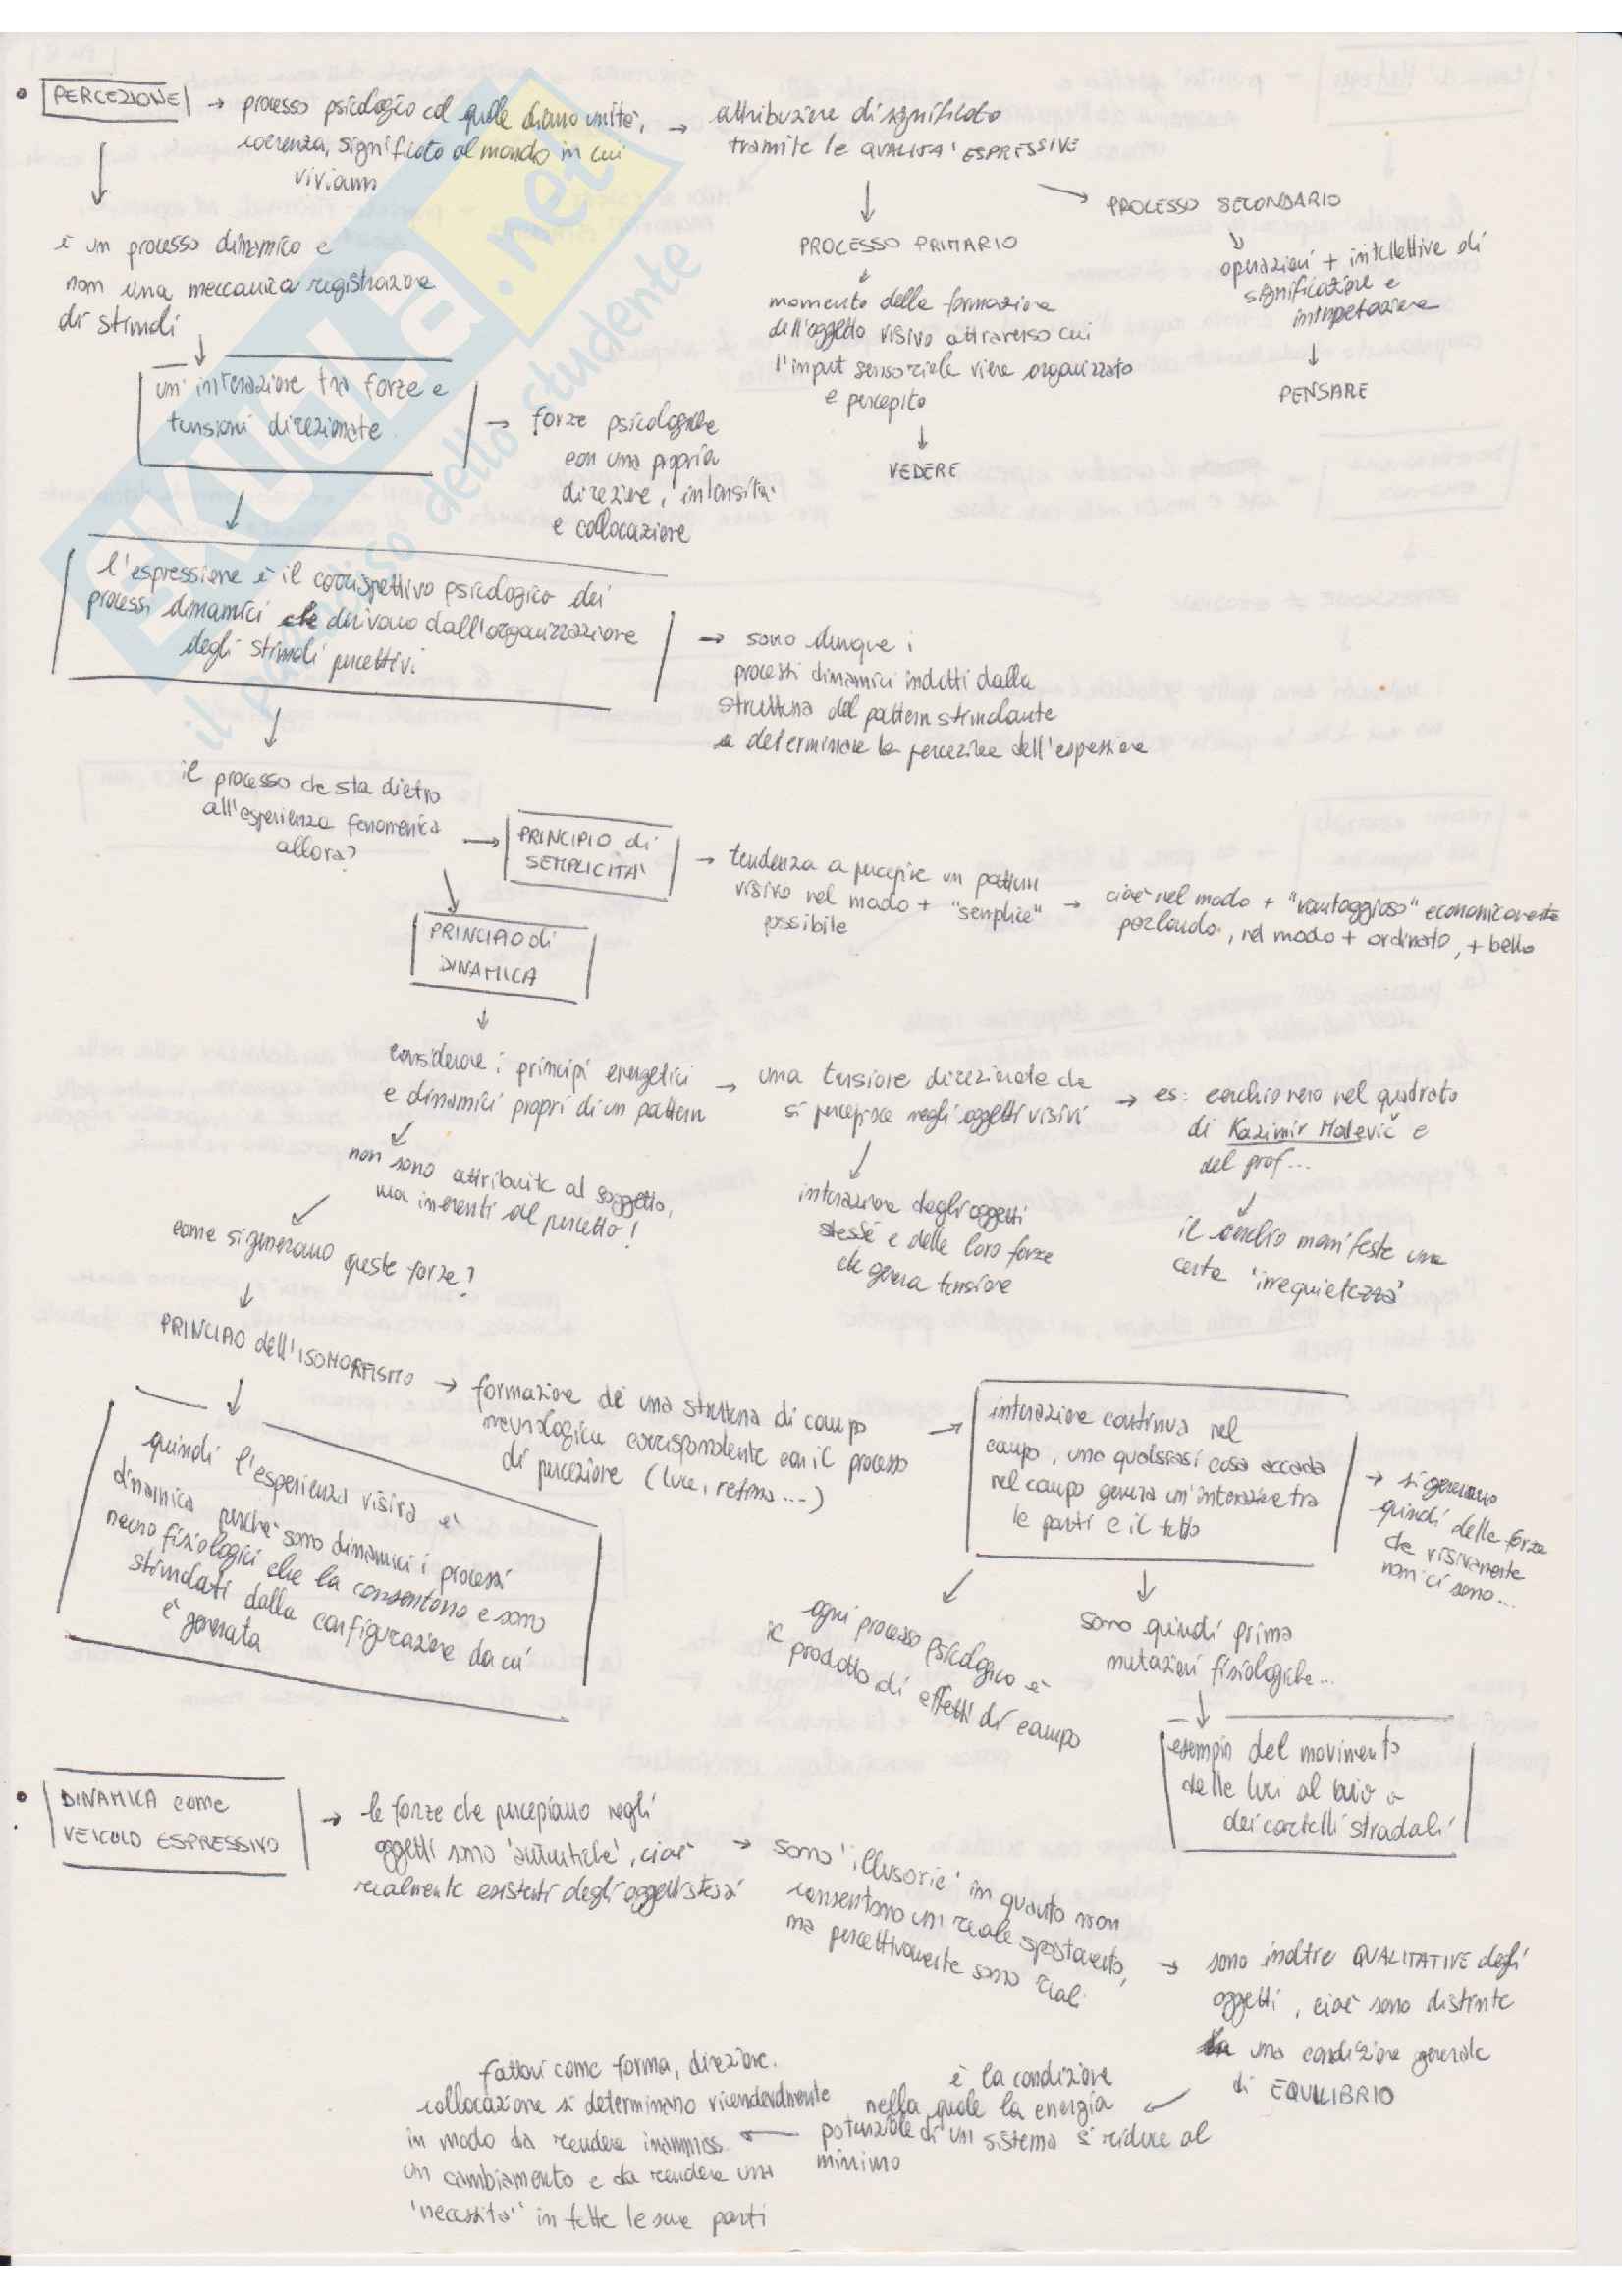 • PERCEZIONE → processo psicologico col quale diamo unità,
coerenza, significato al mondo in cui
viviamo
→ attribuzione di significato
tramite le QUALITA' ESPRESSIVE
↓
PROCESSO PRIMARIO
↓
momento della formazione
dell'oggetto visivo attraverso cui
l'input sensoriale viene organizzato
e percepito
↓
VEDERE
PROCESSO SECONDARIO
↓
operazioni + intellettive di
significazione e
interpretazione
↓
PENSARE
è un processo dinamico e
non una meccanica registrazione
di stimoli
↓
un'interazione tra forze e
tensioni direzionate
→ forze psicologiche
con una propria
direzione, intensità
e collocazione
l'espressione è il corrispettivo psicologico dei
processi dinamici che derivano dall'organizzazione
degli stimoli percettivi
→ sono dunque i
processi dinamici indotti dalla
struttura del pattern stimolante
a determinare la percezione dell'espressione
il processo che sta dietro
all'esperienza fenomenica
allora?
→ PRINCIPIO di
SEMPLICITA'
→ tendenza a percepire un pattern
visivo nel modo + "semplice"
possibile
→ cioè nel modo + "vantaggioso" economicamente
parlando, nel modo + ordinato, + bello
PRINCIPIO di
DINAMICA
↓
considerare i principi energetici
e dinamici propri di un pattern
→ una tensione direzionata che
si percepisce negli oggetti visivi
→ es: cerchio nero nel quadrato
di Kazimir Malevič e
del prof...
↓
il cerchio manifesta una
certa 'irrequietezza'
interazione degli oggetti
stessi e delle loro forze
che genera tensione
non sono attribuite al soggetto,
ma inerenti al percetto!
come si generano queste forze?
↓
PRINCIPIO dell'ISOMORFISMO
→ formazione di una struttura di campo
neurologica corrispondente con il processo
di percezione (luce, retina...)
→ interazione continua nel
campo, una qualsiasi cosa accada
nel campo genera un'interazione tra
le parti e il tutto
→ si generano
quindi delle forze
che visivamente
non ci sono...
quindi l'esperienza visiva è
dinamica perché sono dinamici i processi
neuro fisiologici che la consentono e sono
stimolati dalla configurazione da cui
è generata
ogni processo psicologico è
il prodotto di effetti di campo
sono quindi prima
mutazioni fisiologiche...
↓
esempio del movimento
delle luci al buio o
dei cartelli stradali
• DINAMICA come
VEICOLO ESPRESSIVO
→ le forze che percepiamo negli
oggetti sono 'autentiche', cioè
realmente esistenti degli oggetti stessi
→ sono 'illusorie' in quanto non
consentono un reale spostamento,
ma percettivamente sono reali
→ sono inoltre QUALITATIVE degli
oggetti, cioè sono distinte
da una condizione generale
di EQUILIBRIO
è la condizione
nella quale la energia
potenziale di un sistema si riduce al
minimo
fattori come forma, direzione.
collocazione si determinano vicendevolmente
in modo da rendere inammiss.
un cambiamento e da rendere una
'necessità' in tutte le sue parti
SKUOLA.net
il paradiso dello studente